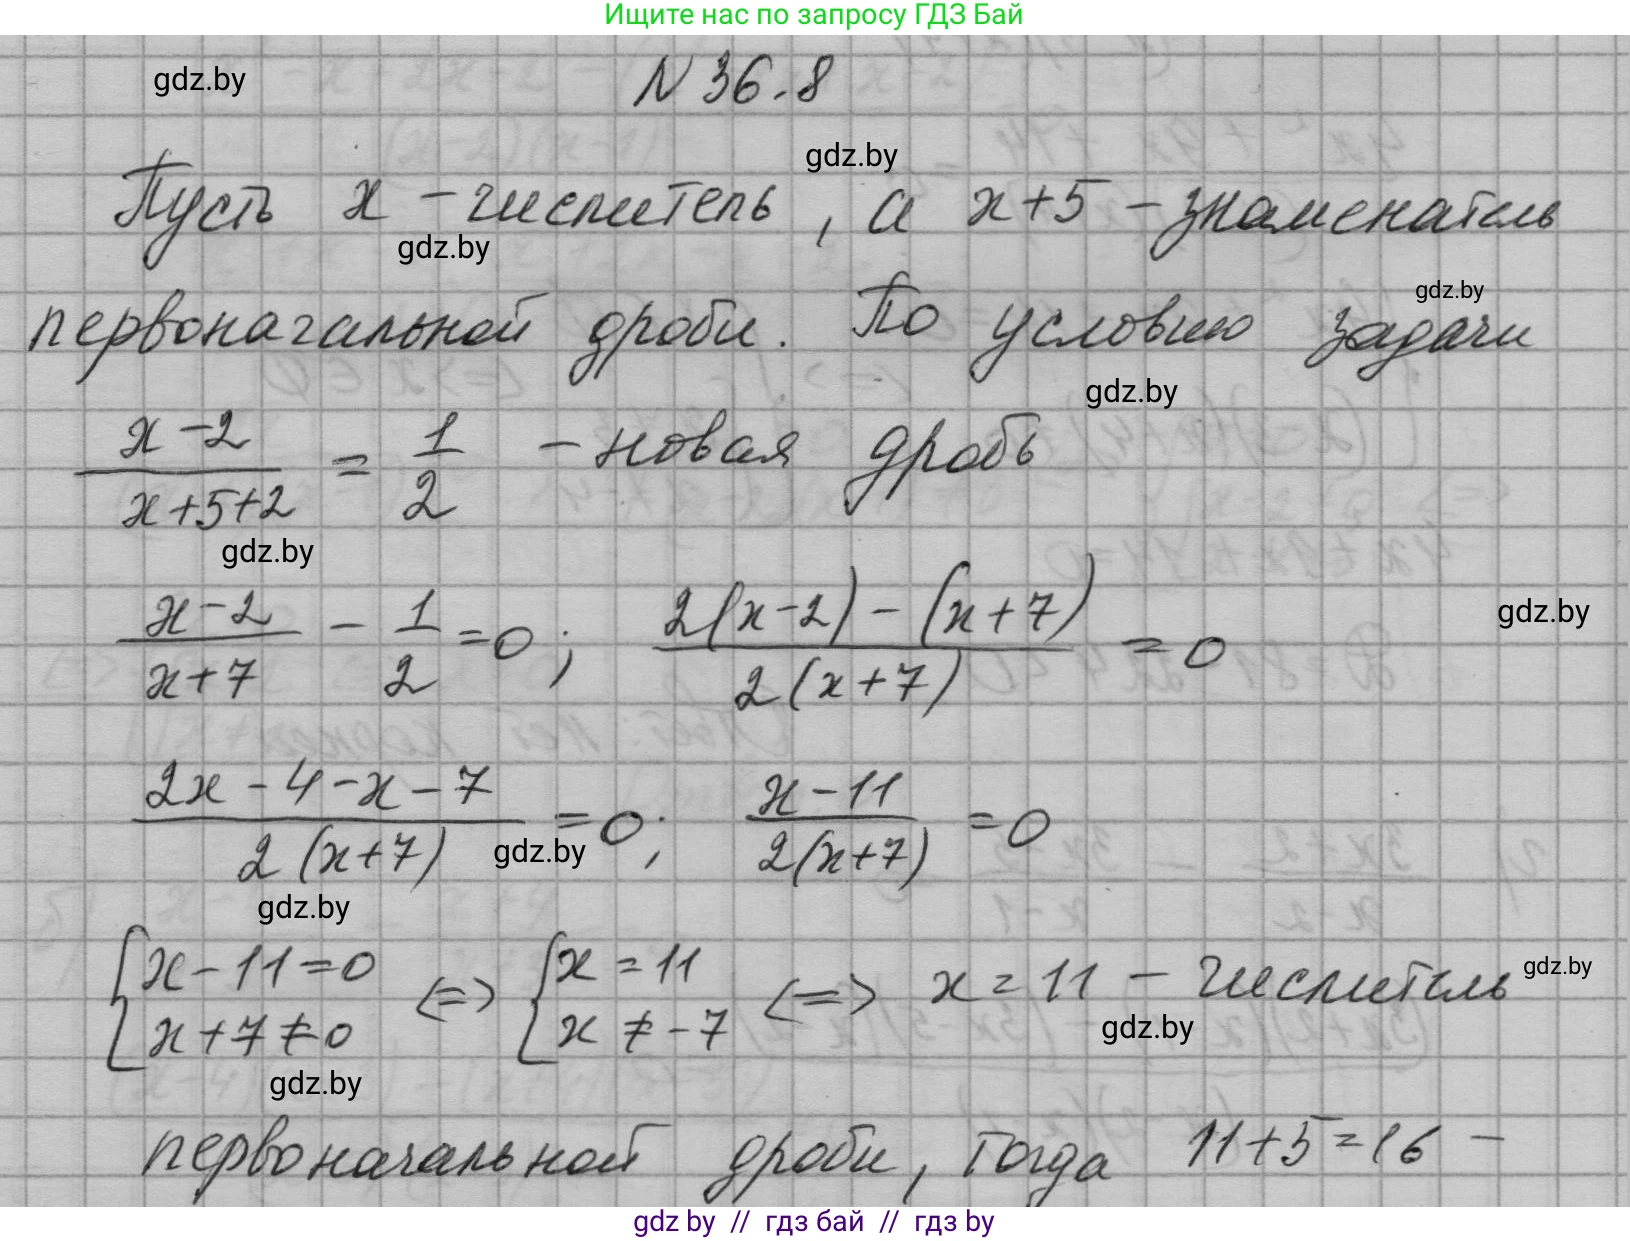 Ищите нас по запросу ГДЗ Бай
gdz.by
N 36.8
gdz.by
Пусть x - числитель, а x+5 - знаменатель
gdz.by
первоначальной дроби. По условию задачи
gdz.by
gdz.by
x-2 / x+5+2 = 1/2 - новая дробь
gdz.by
x-2 / x+7 - 1/2 = 0; 2(x-2)-(x+7) / 2(x+7) = 0
gdz.by
2x-4-x-7 / 2(x+7) = 0; x-11 / 2(x+7) = 0
gdz.by
gdz.by
{ x-11=0 <=> { x=11 <=> x=11 - числитель
x+7≠0 x≠-7
gdz.by
gdz.by
gdz.by
первоначальной дроби, тогда 11+5=16 -
gdz by // гдз бай // гдз by